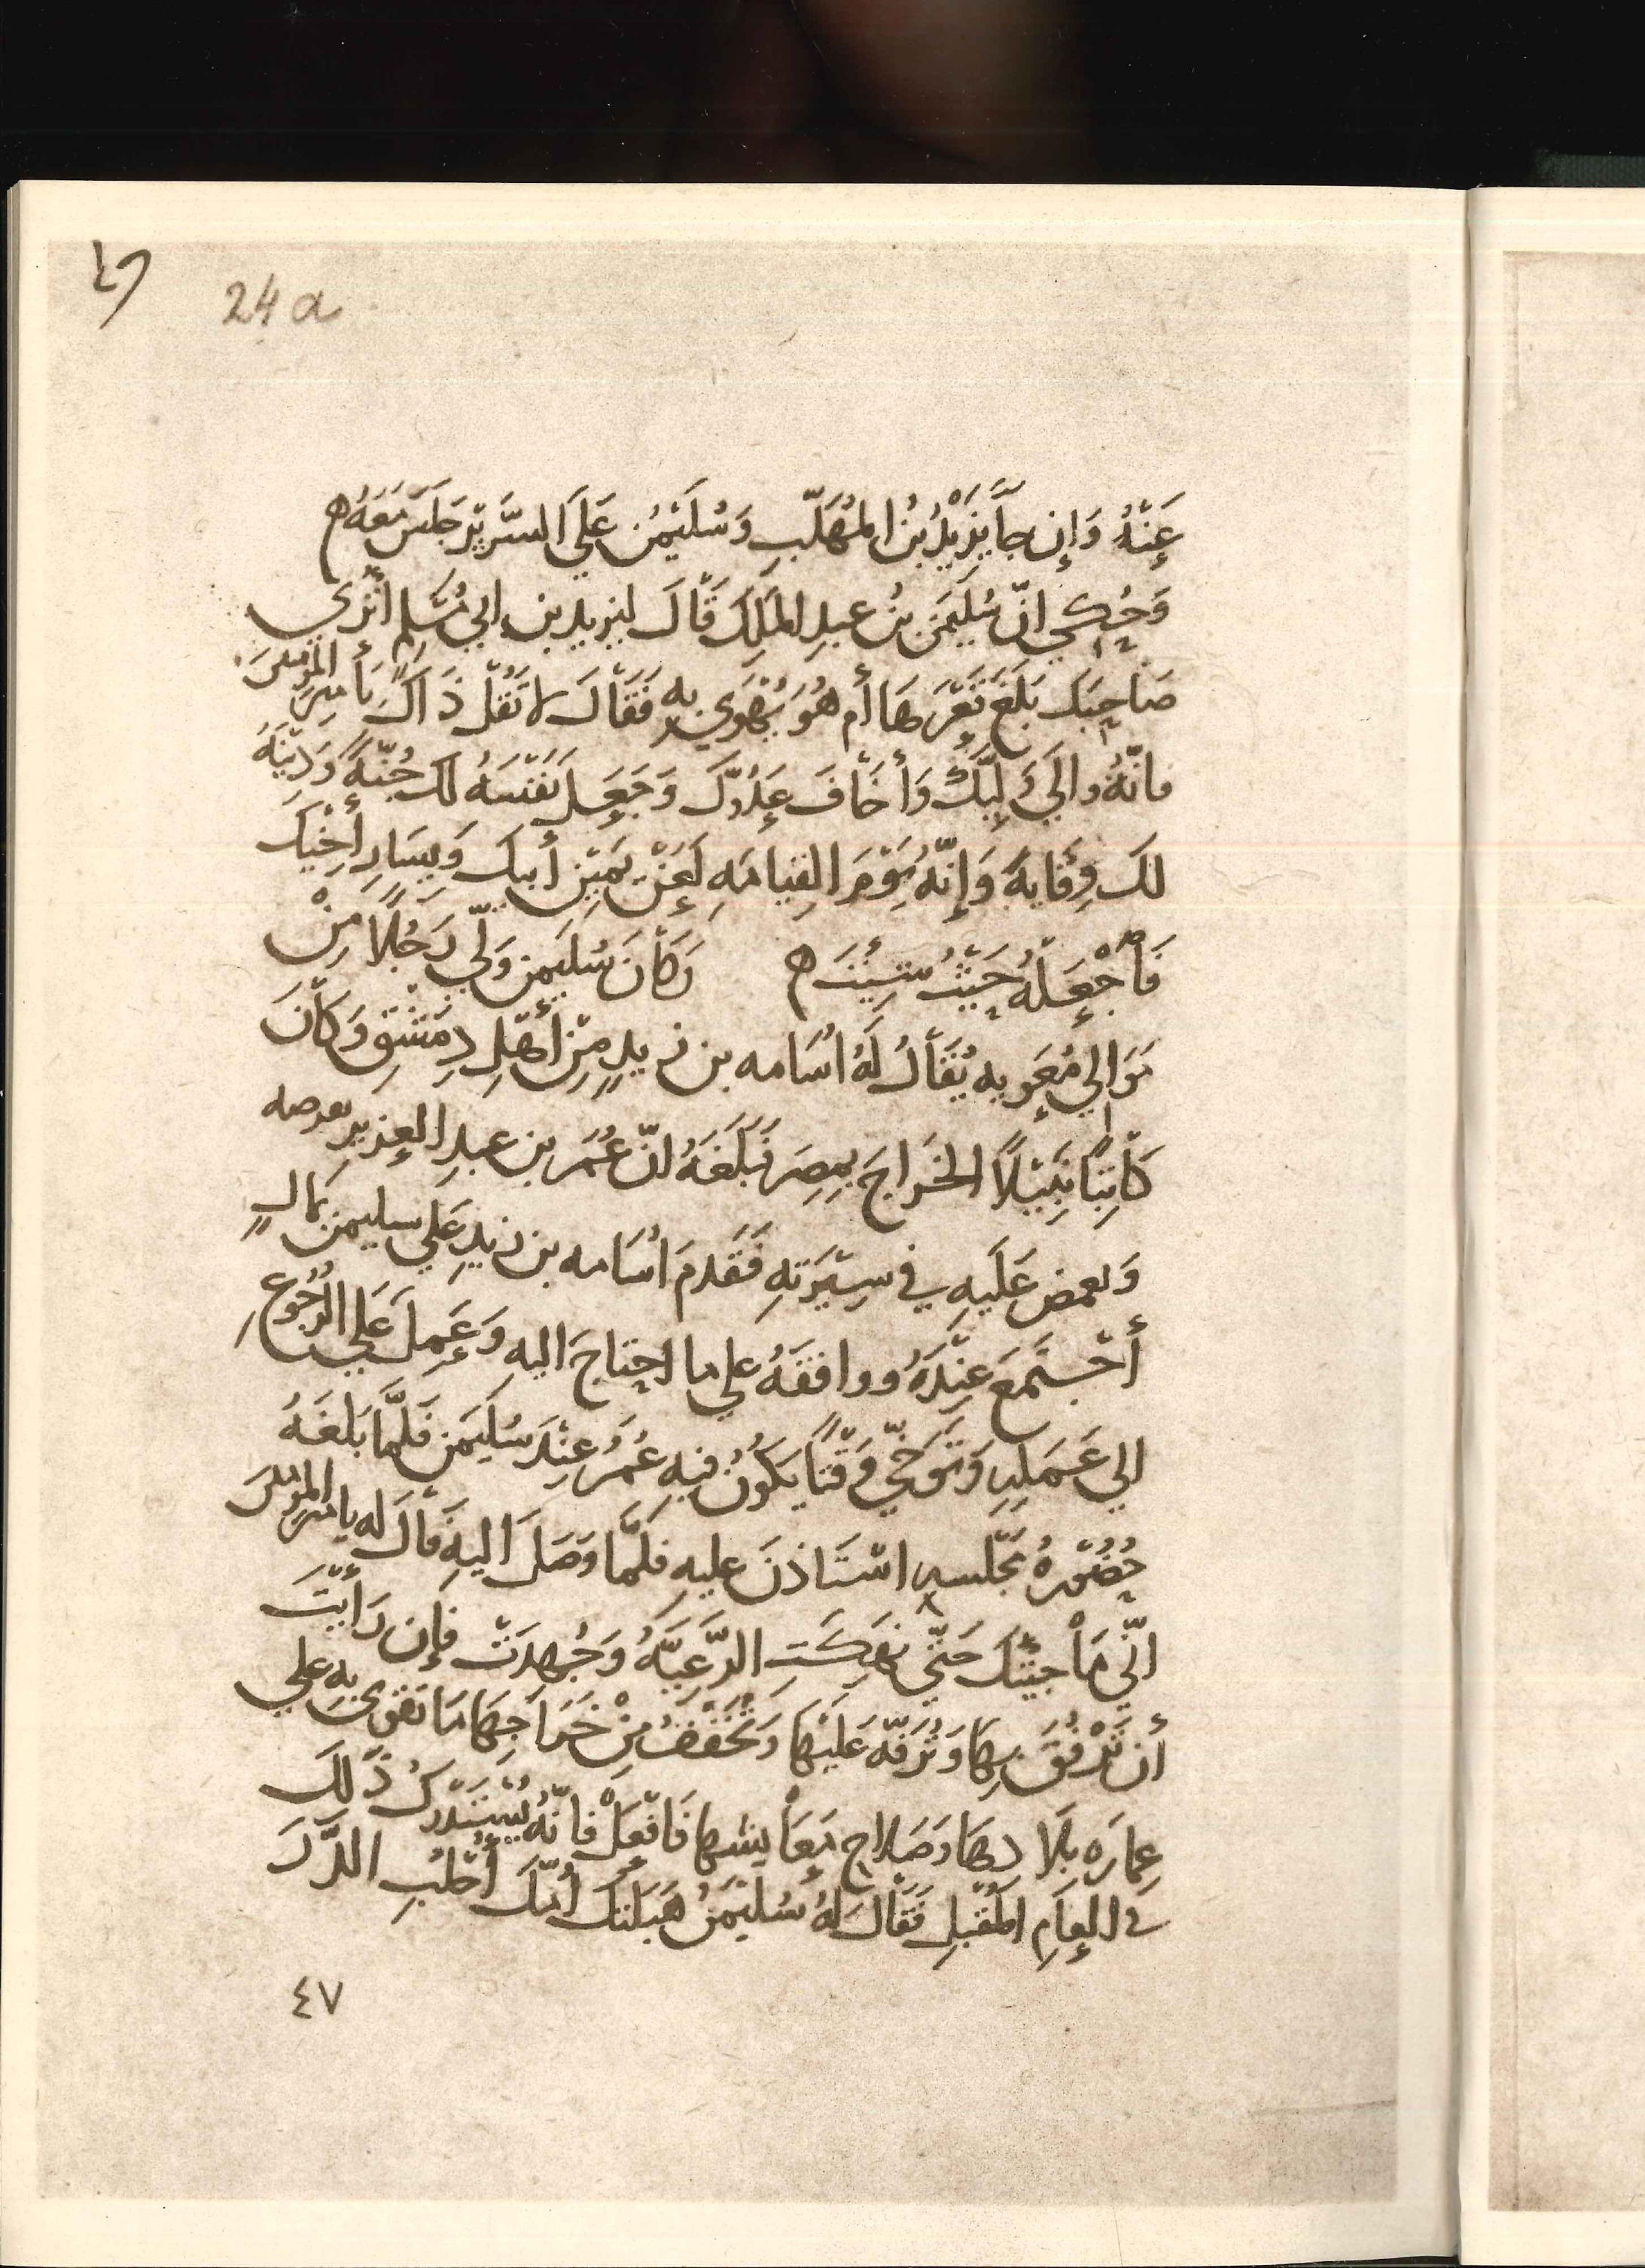 ٤٦
24 a
عَنْهُ وَإِن جآ يَزِيْدُ بْنُ المُهَلَّبِ وَسُلَيْمٰنُ عَلَى السَّرِيْرِ جَلَسَ مَعَهُ ه
وَحُكِيَ انّ سُلَيمٰنَ بنُ عبدِ المَلِكَ قَالَ ليزيد بن ابي مُسْلمٍ أَتُرَي
صَاحِبَك بَلَغَ قَعْرَهَا أم هُوَ يَهْوِي به فَقَالَ لا تَقُلْ ذَاكَ يَا امِيرَ المؤمنينَ
فانّهُ والَي وَلِيَّكَ وَأَخَافَ عَدُوّكَ وَجَعَلَ نَفْسَهُ لكَ جُنّةً وَدِيْنَهُ
لكَ وِقَايةً وَإِنّهُ يَوْمَ القِيامَةِ لَعَنْ يَمِيْنِ أبيكَ وَيسَارِ أخِيْكَ
فَأجْعَلهُ حَيْثُ شِئْتَ ه وَكَانَ سُليَمٰن وَلّي رَجُلًا مِنْ
مَوَالي مُعٰويه يُقَالُ لَهُ اسَامه بن زيدٍ مِنْ أهْلِ دِمَشْقَ وَكَانَ
كَاتِبًا نَبِيْلًا الخَراجَ بمِصرَ فَبَلَغَهُ انّ عُمَرَ بن عبدِ العزيز يعرضه
وَيغمض عَلَيهِ في سِيْرَتهِ فَقَدمَ اسَامه بن زيدٍ علي سليمٰن بمَالٍ
أجْتَمعَ عِنْدَهُ ووافقَهُ علي ما احتاجَ اليهِ وَعَمِلَ عَلي الرّجُوعِ
الي عَمَلِهِ وَتَوَخّي وَقْتًا يَكُونُ فيهِ عُمَرُ عِنْدَ سُلَيمٰنَ فَلَمّا بَلَغَهُ
حُضُوْرهُ مَجْلسهِ اسْتَاذنَ عليهِ فلمَّا وَصَلَ اليهِ قَالَ له يا امير المؤمنينَ
انّي مَا جيتُكَ حَتّي نهِكَتِ الرَّعِيَّةُ وَجُهِدَتْ فإن رَأيْتَ
أن تَرْفُقَ بهَا وَتُرَفّهَ عَلَيهَا وَتُخَفّفَ مِنْ خَرَاجِهَا مَا تَقوي به علي
عِمارَه بلَادهَا وَصَلاحِ مَعَايشها فَافْعَلْ فانّهُ يُسْتَدْرَكُ ذلكَ
في العامِ المُقْبلِ فَقَالَ لهُ سُليْمٰنُ هَبَلتكَ أمّكَ أحلُبِ الدَّرَّ
٤٧